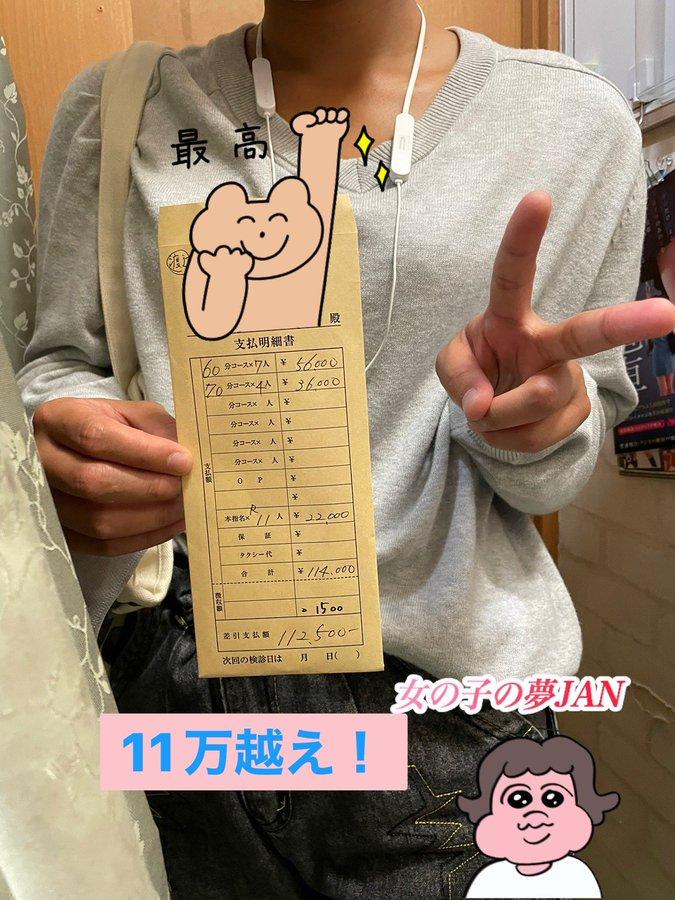 最高
殿
支払明細書
60 分コース×7人 ¥ 56000
70 分コース×4人 ¥ 36000
分コース× 人 ¥
分コース× 人 ¥
分コース× 人 ¥
分コース× 人 ¥
支払額
O P ¥
¥
本指名×R 11人 ¥ 22,000
保 証 ¥
タクシー代 ¥
合 計 ¥ 114,000
徴収額
1500
差引支払額 112,500-
次回の検診日は 月 日( )
女の子の夢JAN
11万越え!